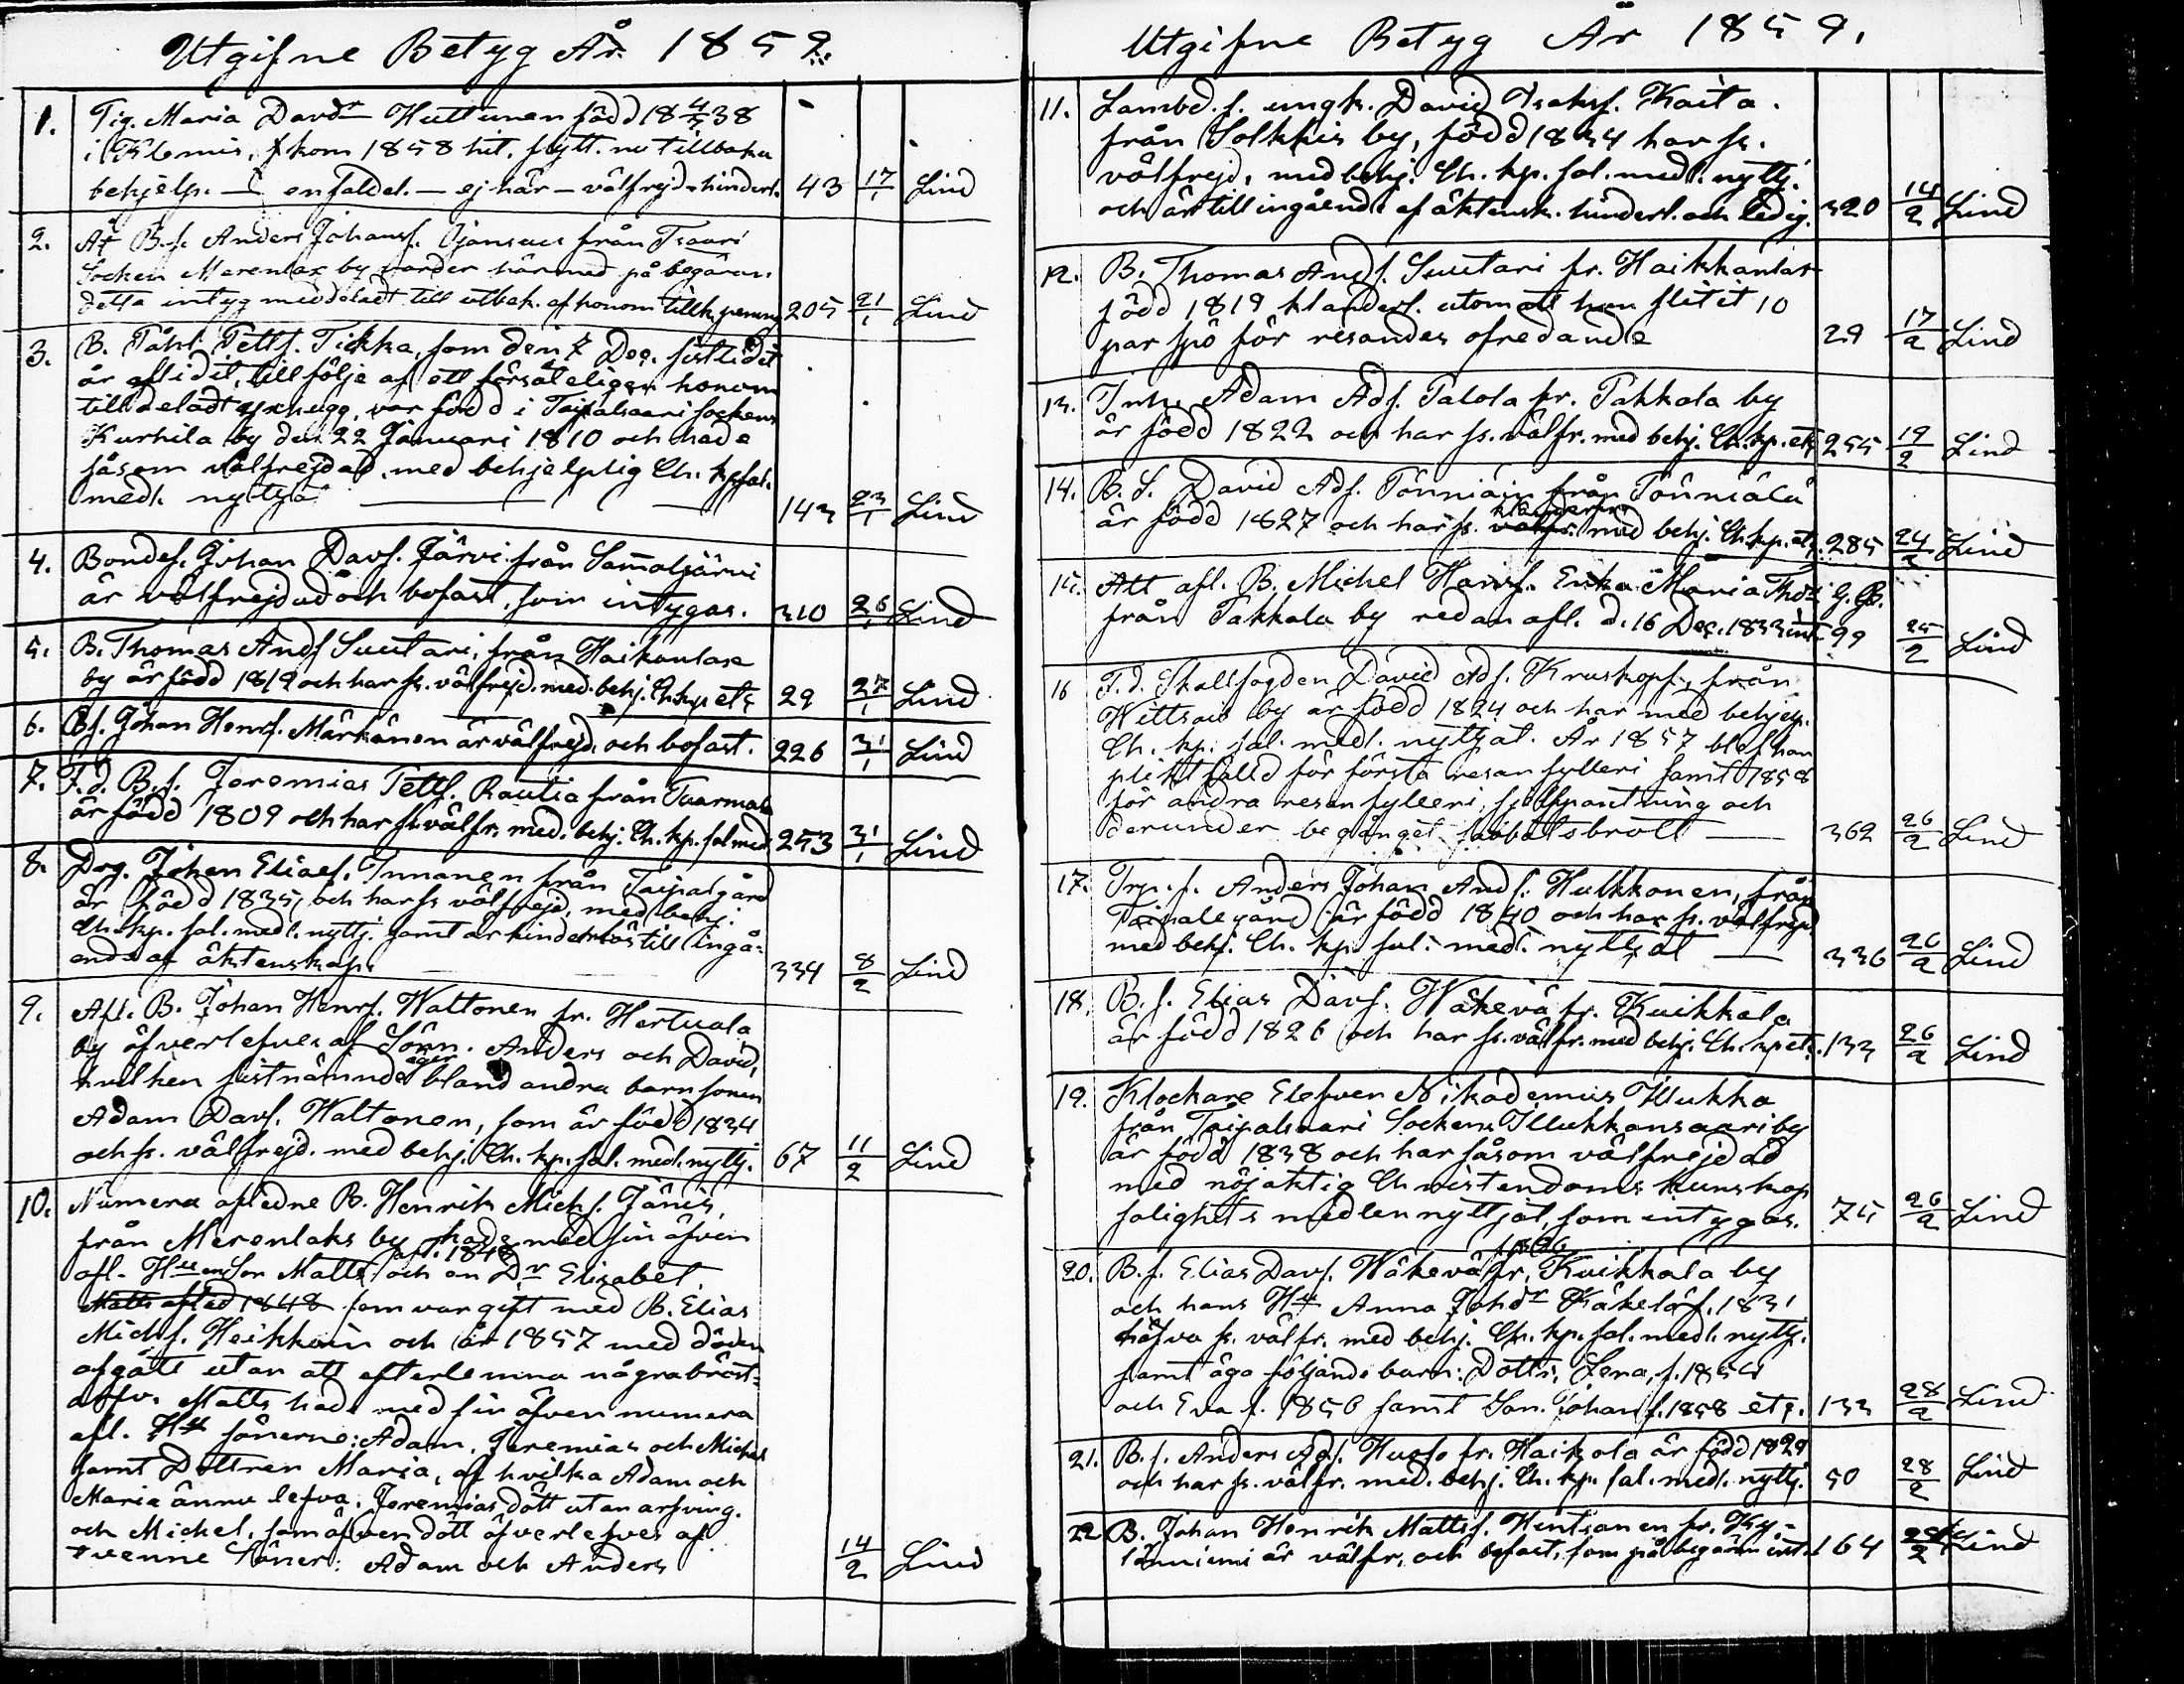 Utgifne Betyg År 1859.
1. Pig. Maria Davdr Huttunen född 18 4/3 38
i Klemis, kom 1858 hit, flytt. nu tillbaka
behjelp. — enfaldel. — ej här — välfrejd. hinderl. 43 17/1 Lind
2. At B.s. Anders Johansf. Ojansuu från
Socken Merenlax by varder härmed på begäran
detta intyg meddeladt till utbek. af honom tillk. 205 21/1 Lind
3. B. Påhl Pettf. Tikka, som den 7 Dec. sistlidet
år aflidit, till följe af ett försåteligen honom
tilldeladt yxhugg, var född i Taipalsaari sockens
Kurhila by den 22 Januari 1810 och hade
såsom välfrejdad med behjelplig Ch. kp sal.
medl. nyttjat — 143 23/1 Lind
4. Bondes. Johan Davf. Järvi från Sammaljärvi
är välfrejdad och bofast, som intygas. 310 26/1 Lind
5. B. Thomas Andf Suutari, från Haikanlax
by är född 1819 och har ss. välfrejd. med behj. Ch. kp etc 29 27/1 Lind
6. Bf. Johan Henrf. Märkänen är välfrejd. och bofast. 226 31/1 Lind
7. F.d. B.s. Jeremias Pettf. Rautia från
är född 1809 och har ss. välfr. med. behj. Ch. kp. sal med 253 31/1 Lind
8. Drg. Johan Eliasf. Innanen från Taipalgård
är född 1835, och har ss välfrejd, med behj.
Ch. kp. sal. medl. nyttj. samt är hinderlös till ingå-
ende af äktenskap. 334 8/2 Lind
9. Afl. B. Johan Henrf. Waltonen fr. Hertuala
by öfverlefves af Sönn. Anders och David,
hvilken sistnämnde äger bland andra barn sonen
Adam Davf. Waltonen, som är född 1834
och ss. välfrejd. med behj. Ch. kp. sal. medl. nyttj. 67 11/2 Lind
10. Numera aflidne B. Henrik Michf. Jänis,
från Merenlaks by hade med sin äfven
afl. Hu en Son Matts afl. 1848 och en Dr Elisabet
Matts afled 1848 som var gift med B. Elias
Michf. Heikkoin och år 1857 med döden
afgått utan att efterlemna några bröst-
arfv. Matts hade med sin äfven numera
afl. Hu sönerne: Adam, Jeremias och Michel
samt Dottren Maria, af hvilka Adam och
Maria ännu lefva. Jeremias dött utan arfving.
och Michel, som äfven dött öfverlefves af
tvenne Söner: Adam och Anders 14/2 Lind
Utgifne Betyg År 1859.
11. Landbd. s. ungk. David Isaksf. Kaita.
från Solkkis by, född 1834 har ss.
välfrejd, med behj. Ch. kp. sal. medl. nyttj.
och är till ingående af äktensk. hinderl. och ledig. 320 14/2 Lind
12. B. Thomas Andf. Suutari fr. Haikkanlax
född 1819 klanderl. utom att han slitit 10
par spö för resandes ofredande 29 17/2 Lind
13. Inh. Adam Adf. Talola fr. Pakkala by
är född 1822 och har ss. välfr. med behj. Ch. kp. etc 255 19/2 Lind
14. B. S. David Adf. Pönniäin från Pönniälä
är född 1827 och har ss. välfr. med behj. Ch. kp. etc. 285 24/2 Lind
15. Att afl. B. Michel Hansf. Enka Maria Thdr
från Pakkala by redan afl. d. 16 Dec. 1833 int. 99 25/2 Lind
16 F. d. Skallfogden David Adf. Kruskopf, från
Wittsai by är född 1824 och har med behjelp.
Ch. kp. sal. medl. nyttjat. År 1857 blef han
pliktfälld för första resan fylleri samt 1858
för andra resan fylleri, sjelfpantning och
derunder begånget sabbatsbrott — 362 26/2 Lind
17. Trp. s. Anders Johan Andf. Hulkkonen, från
Taipalegård är född 1840 och har ss. välfrejd
med behj. Ch. kp. sal. medl. nyttjat — 336 26/2 Lind
18. B. s. Elias Davf. Wäkevä fr. Kuikkala
är född 1826 och har ss. välfr. med behj. Ch. kp etc. 133 26/2 Lind
19. Klockare Elefven Nikodemus Illukka
från Taipalsaari Sockens Illukkansaari by
är född 1838 och har såsom välfrejdad
med nöjaktig Christendoms kunskap
salighets medlen nyttjat, som intygas. 75 26/2 Lind
20. B. s. Elias Davf. Wäkevä f. 1826 fr. Kuikkala by
och hans Hu Anna Johdr Käkelä f. 1831
häfva ss. välfr. med behj. Ch. kp. sal. medl. nyttj.
samt äga följande barn: Döttr. Lena, f. 1854
och Eva f. 1856 samt Son. Johan f. 1858 etc. 133 28/2 Lind
21. B. s. Anders Adf. Husso fr. Haikola är född 1829
och har ss. välfr. med. behj. Ch. kp. sal. medl. nyttj. 50 28/2 Lind
22 B. Johan Henrik Mattsf. Hentsanen fr. Ky-
läniemi är välfr. och bofast, som på begäran int. 164 28/2 Lind